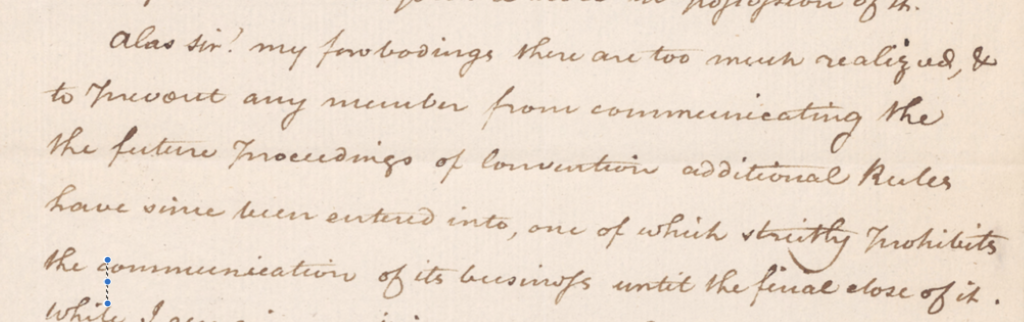 possession of it.
Alas sir! my forebodings there are too much realized, &
to prevent any member from communicating the
the future proceedings of Convention additional Rules
have since been entered into, one of which strictly prohibits
the communication of its business until the final close of it.
while I am